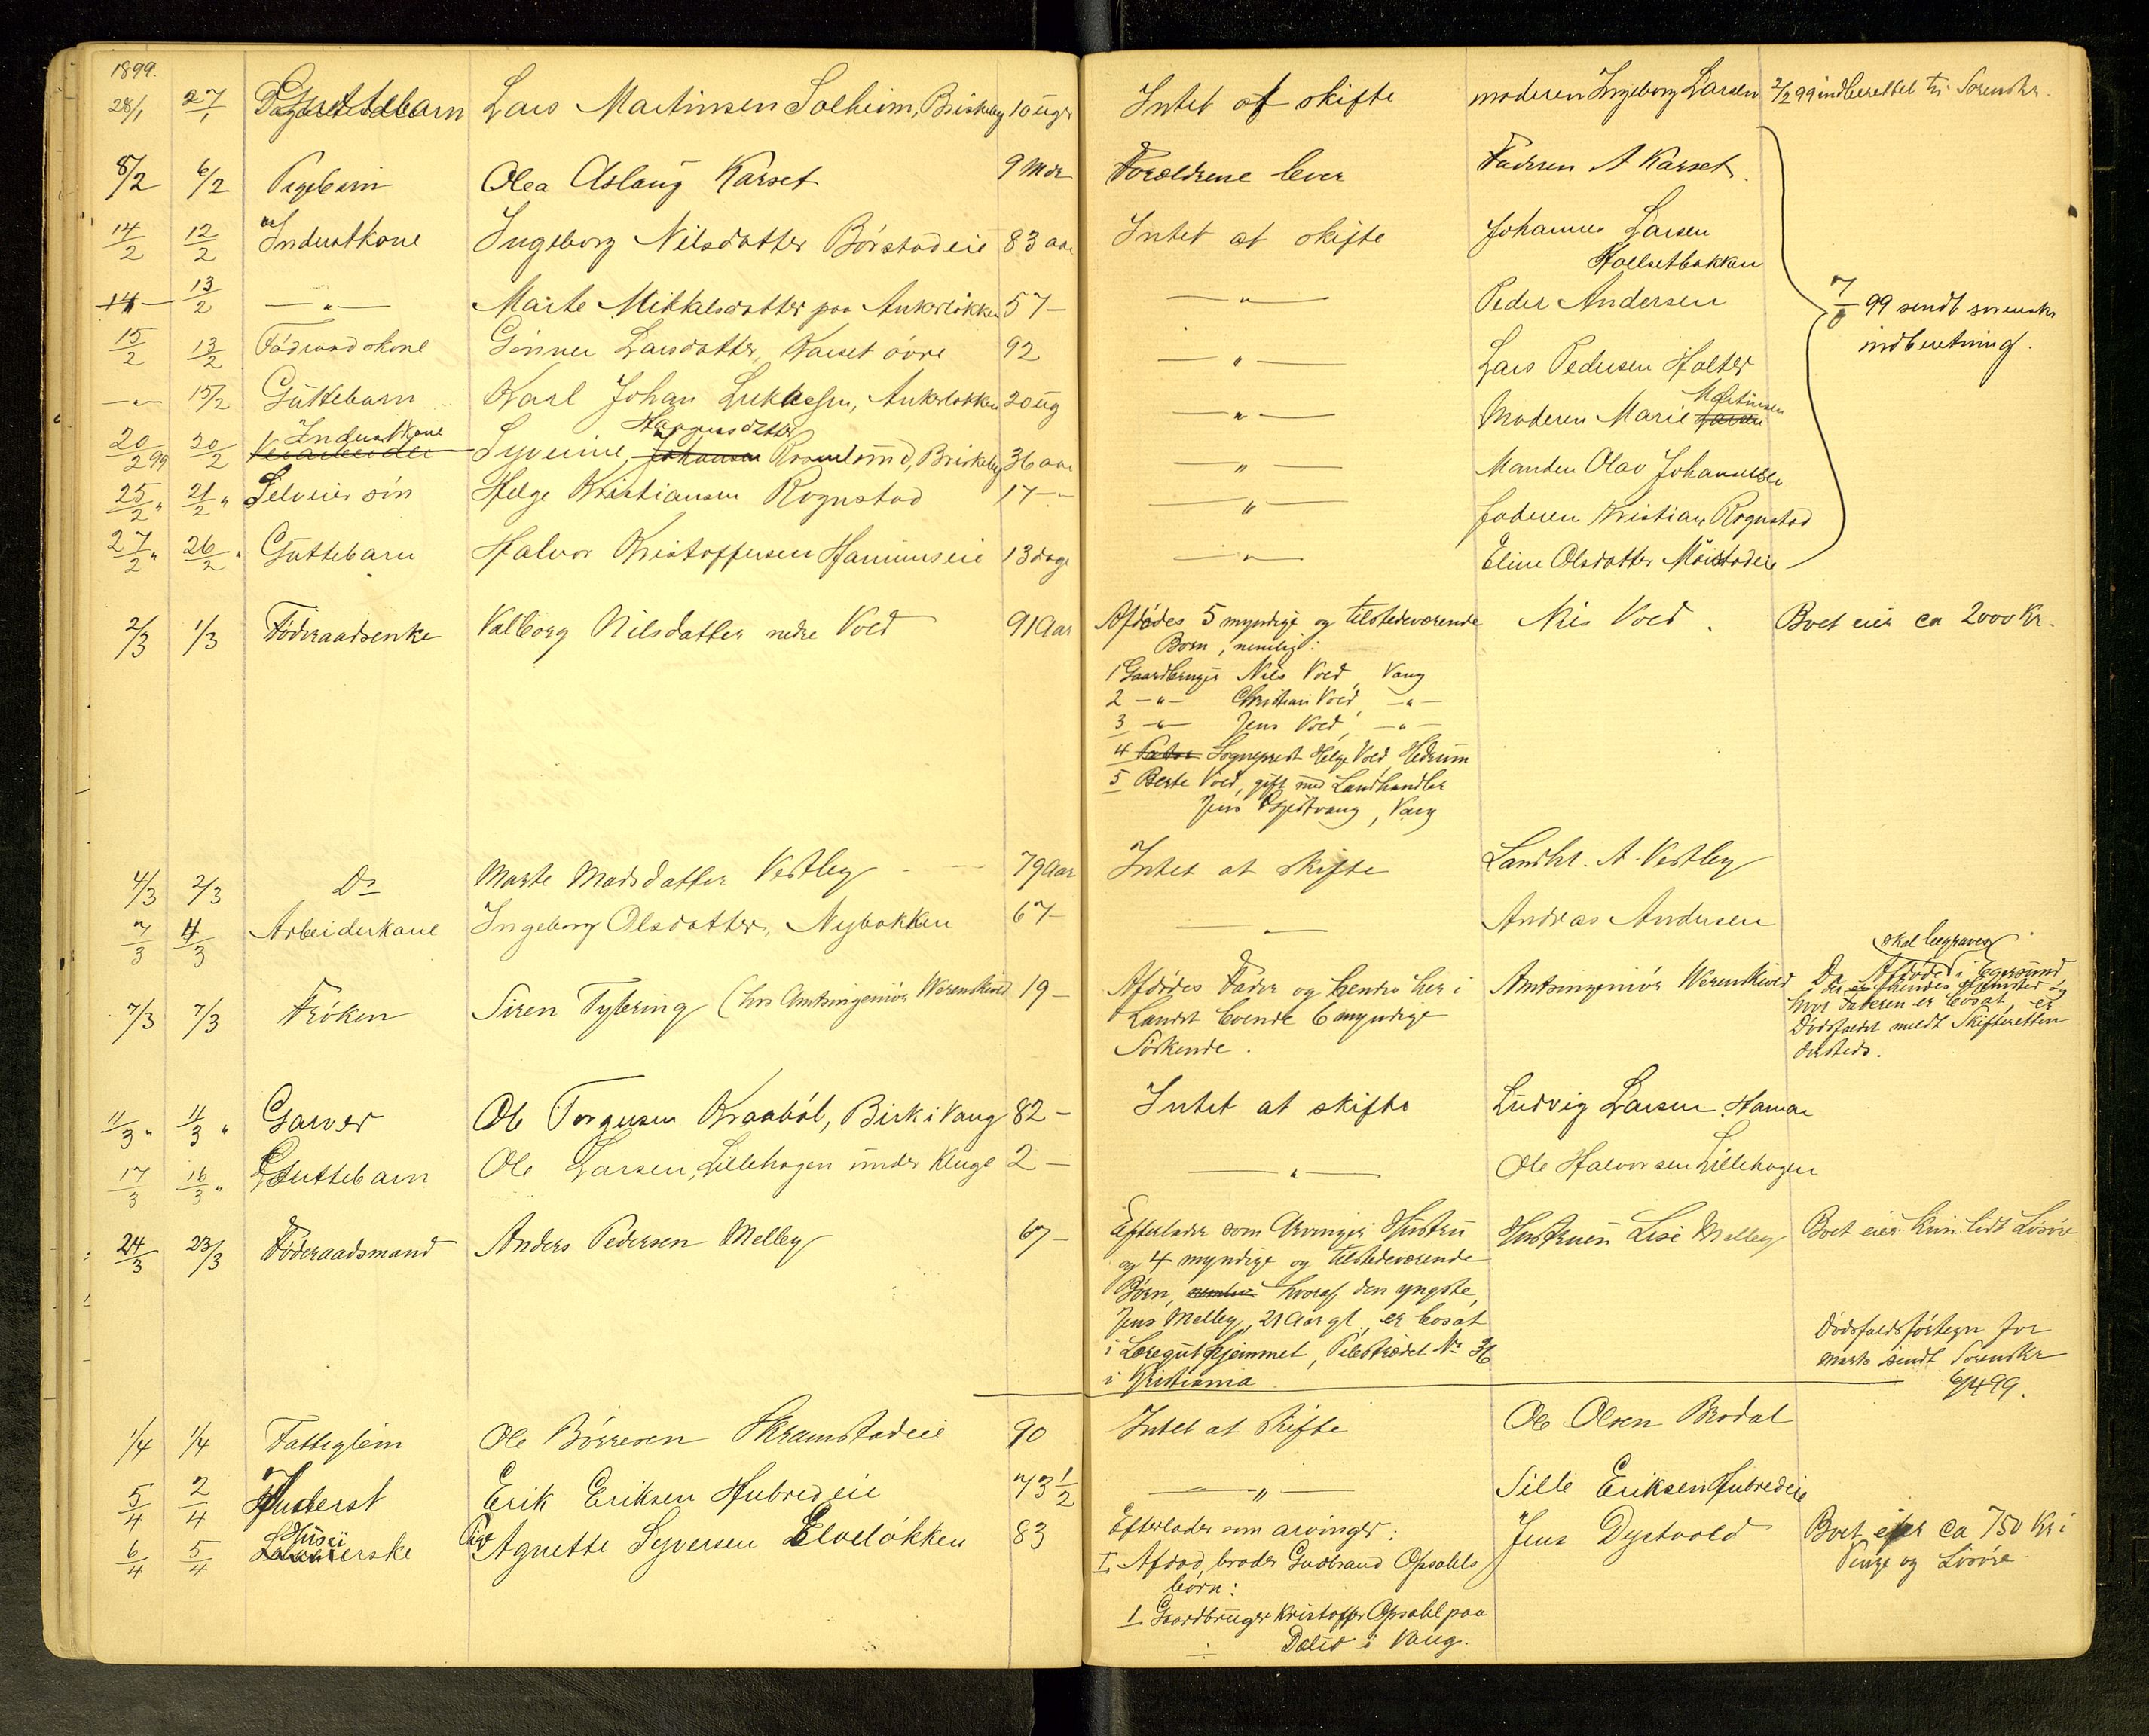 1899.
28/1 27/1 Guttebarn Lars Martinsen Solheim, Briskeby 10 uger Intet at skifte moderen Ingeborg Larsen 2/2 99 indberettet til Sorenskr.
8/2 6/2 Pigebarn Olea Aslaug Karset 9 Mdr Forældrene lever Faderen A Karset.
14/2 12/2 Inderstkone Ingeborg Nilsdatter Börstadeie 83 aar Intet at skifte Johannes Larsen
Hoelsetbakken
14 13/2 —"— Marte Mikkelsdatter paa Ankerløkken 57 — —"— Peder Andersen
99 sendt sorenskr
indberetning.
15/2 13/2 Föderaadskone Gönner Larsdatter, Karset övre 92 —"— Lars Pedersen Holter
—"— 15/2 Guttebarn Karl Johan Lukassen, Ankerløkken 20 ug —"— Moderen Marie Larsen Martinsen
20/2 99 20/2 Inderstkone Syverine, Johansen Hansdatter Roverlund, Briskeby 36 aar —"— Manden Olav Johannesen
25/2 " 21/2 " Selveiersön Helge Kristiansen Rognstad 17 — —"— faderen Kristian Rognstad
27/2 " 26/2 " Guttebarn Halvor Kristoffersen Hammerseie 13 dage —"— Eline Olsdatter Möistadeie
2/3 1/3 Föderaadsenke Valborg Nilsdatter nedre Vold 91 Aar Afdödes 5 myndige og tilstedeværende Nils Vold. Boet eier ca 2000 Kr.
Börn, nemlig:
1 Gaardbruger Nils Vold, Vang
2 —"— Christian Vold, —"—
3 —"— Jens Vold, —"—
4 Sogneprest Helge Vold, Hedrum
5 Berte Vold, gift med Landhandler
Jens Gjestvang, Vang
4/3 2/3 Do Marte Madsdatter Vestby 79 Aar Intet at skifte Landhl. A. Vestby
7/3 4/3 Arbeiderkone Ingeborg Olsdatter, Nybakken 67 — —"— Andreas Andersen
skal begraves
7/3 7/3 Fröken Siren Tybring (hos Amtsingeniör Werenskiold 19 — Afdödes Fader og hendes her i Amtsingeniör Werenskiold Da Afdöde i Egersund
Landet boende 6 myndige der er hendes Hjemsted og
Söskende. hvor Faderen er bosat, er
Dödsfaldet meldt Skifteretten
dersteds.
11/3 " 11/3 " Garver Ole Torgersen Kraaböl, Birk i Vang 82 — Intet at skifte Ludvig Larsen Hamar
17/3 16/3 " Guttebarn Ole Larsen, Lillehagen under Kluge 2 — —"— Ole Halvorsen Lillehagen
24/3 23/3 Föderaadsmand Anders Pedersen Melby 67 — Efterlader som Arvinger Hustru Hustruen Lise Melby Boet eier kun lidt Lösöre.
og 4 myndige og tilstedeværende
Börn, nemlig hvoraf den yngste,
Jens Melby, 21 Aar gl., er bosat
i Læreguthjemmet, Pilestrædet No 36
i Kristiania
Dödsfaldsfortegn for
marts sendt Sorenskr
6/4 99.
1/4 1/4 Fattiglem Ole Börresen Skramstadeie 90 Intet at skifte Ole Olsen Brodal
5/4 2/4 Inderst Erik Eriksen Hubredeie 73 1/2 —"— Sille Eriksen Hubredeie
6/4 5/4 Huseierske Pige Agnette Syversen Elvelökken 83 Efterlader som arvinger: Jens Dystvold Boet eier ca 750 Kr i
Penge og Lösöre.
I. Afdöd broder Gudbrand Opsahls
börn:
1. Gaardbruger Kristoffer Opsahl paa
Dælid i Vang.